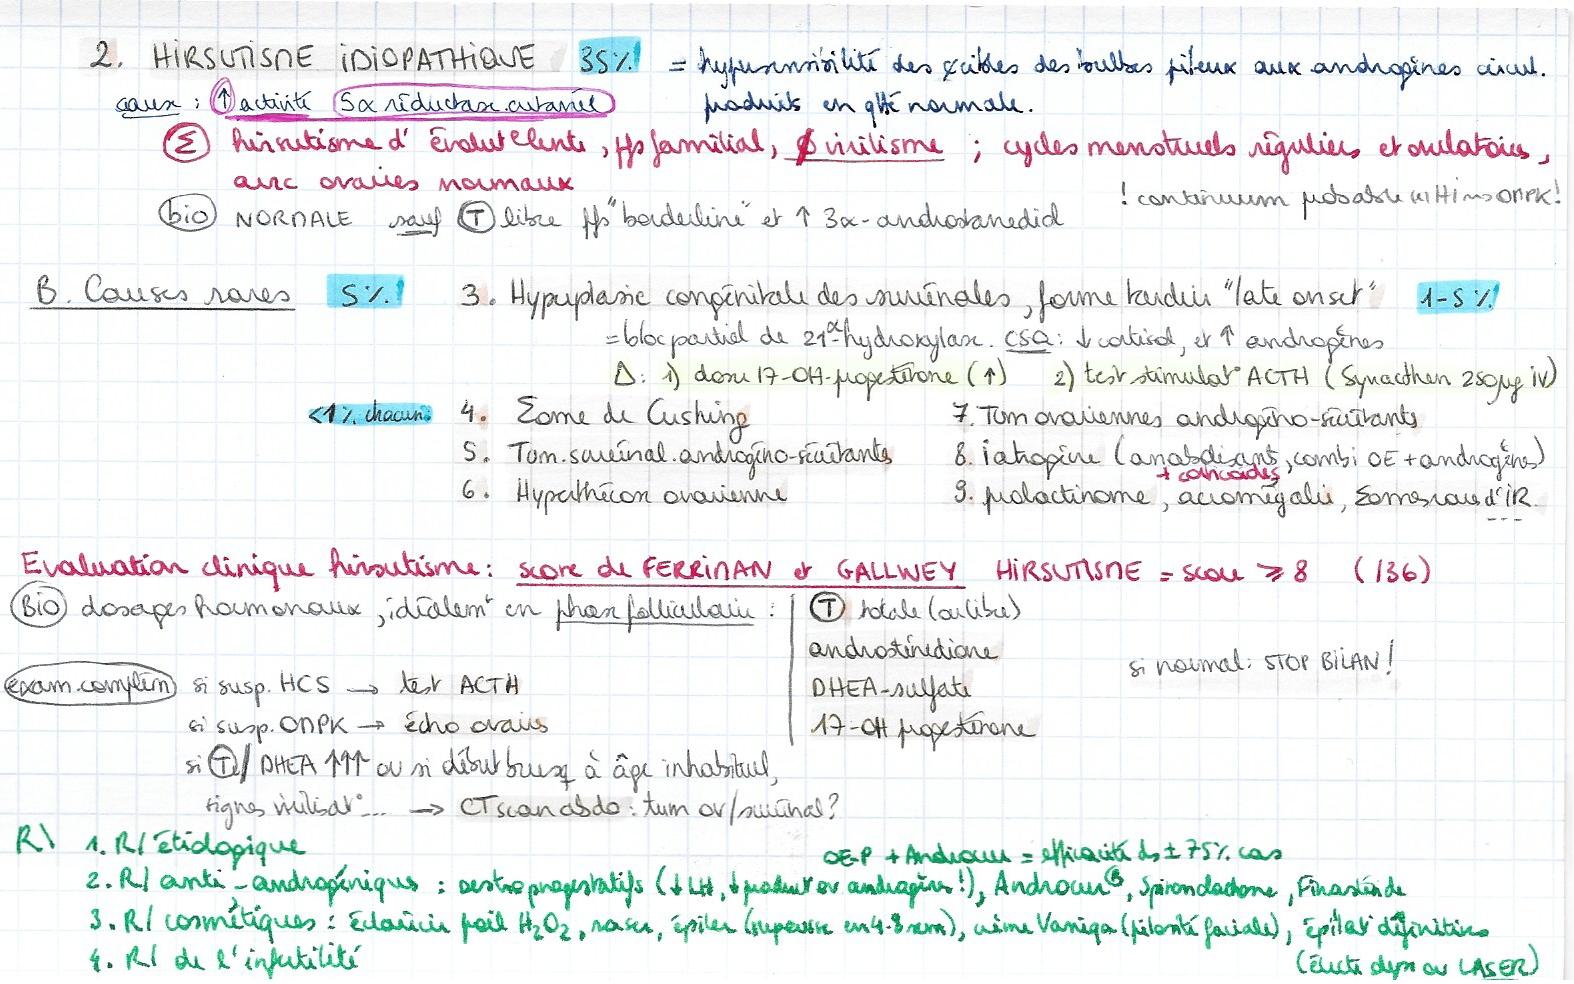 2. HIRSUTISME IDIOPATHIQUE 35% = hypersensibilité des cibles des bulbes pileux aux androgènes circul. produits en qté normale.
cause : ↑ activité 5α réductase cutanée
Σ hirsutisme d' évolut° lente, ffs familial, ∅ virilisme ; cycles menstruels réguliers et ovulatoires,
avec ovaires normaux
! continuum probable HI OMPK!
bio NORMALE sauf T libre ffs "borderline" et ↑ 3α-androstanediol
B. Causes rares 5%! 3. Hyperplasie congénitale des surrénales, forme tardive "late onset" 1-5%!
= bloc partiel de 21α-hydroxylase. CSQ: ↓ cortisol, et ↑ androgènes
Δ: 1) doser 17-OH-progestérone (↑) 2) test stimulat° ACTH (Synacthen 250µg iv)
<1% chacun: 4. Σome de Cushing 7. Tum ovariennes androgéno-sécrétantes
5. Tum. surrénal. androgéno-sécrétantes 8. iatrogène (anabolisants, combi OE + androgènes)
+ corticoïdes
6. Hyperthécose ovarienne 9. prolactinome, acromégalie, Σomes rares d'IR
---
Evaluation clinique hirsutisme: score de FERRIMAN et GALLWEY HIRSUTISME = score ≥ 8 (/36)
Bio dosages hormonaux, idéalemt en phase folliculaire : T totale (ou libre)
androstènedione
si normal: STOP BILAN!
exam. complém si susp. HCS → test ACTH DHEA-sulfate
si susp. OMPK → écho ovaires 17-OH progestérone
si T/DHEA ↑↑↑ ou si début brusq à âge inhabituel,
signes virilisat°... → CT scan abdo : tum ov/surrénal?
R\ 1. R/ étiologique OE-P + Androcur = efficacité ds ± 75% cas
2. R/ anti-androgéniques : oestroprogestatifs (↓ LH, ↓ product° ov androgènes!), Androcur®, Spironolactone, Finastéride
3. R/ cosmétiques : Eclaircir poil H₂O₂, raser, épiler (repousse en 4-8 sem), crème Vaniqa (pilosité faciale), épilat° définitive
4. R/ de l'infertilité (électr ou LASER)